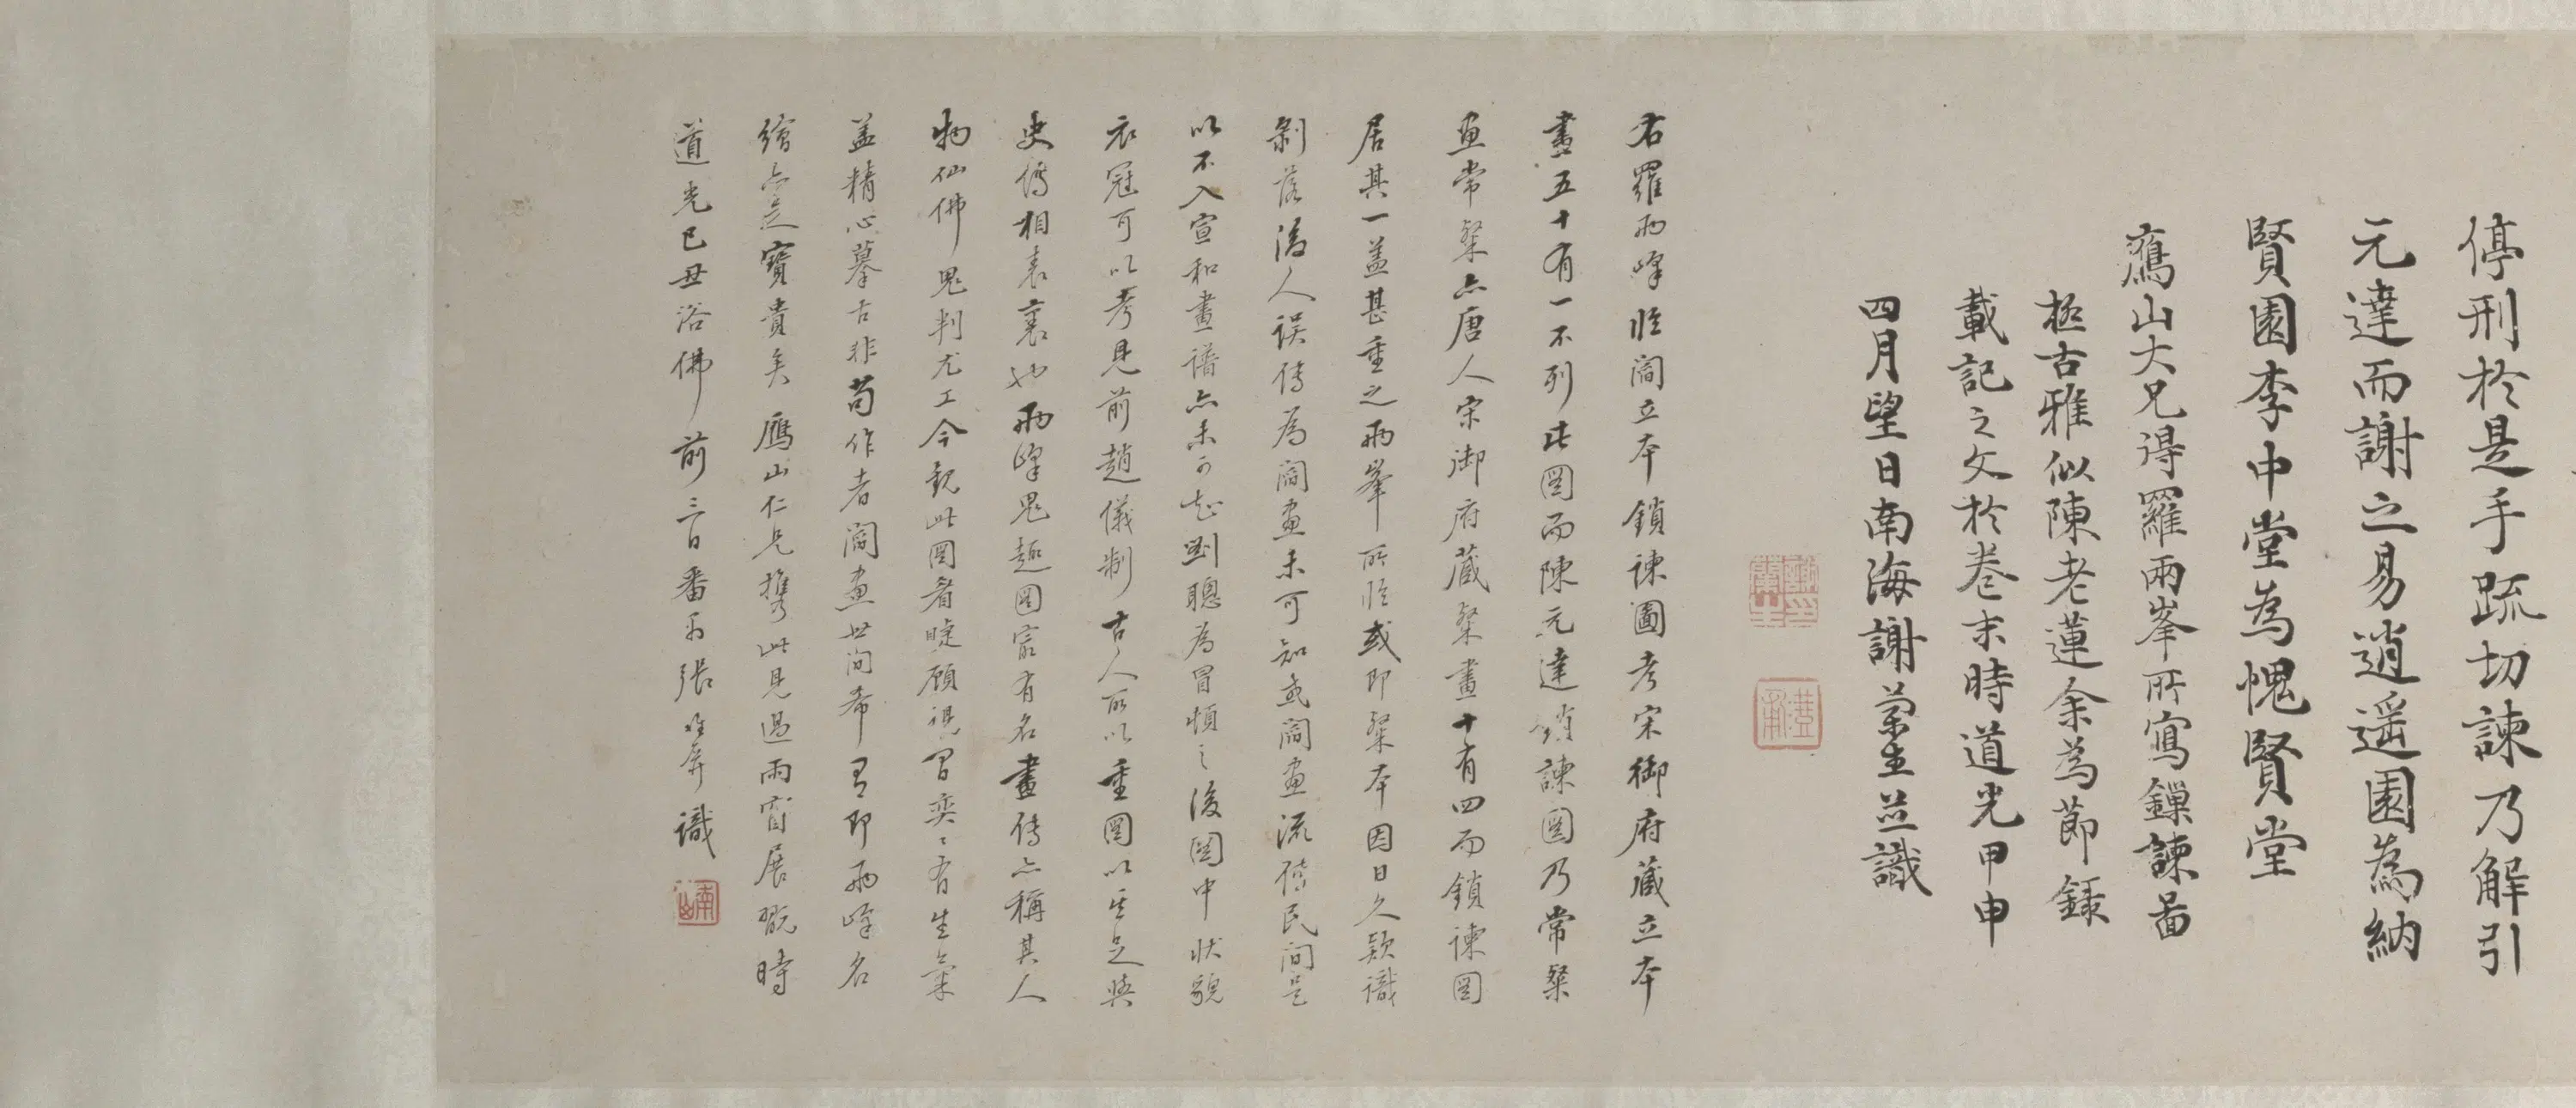 停刑於是手疏切諫乃解引
元達而謝之易逍遥園為納
賢園李中堂為愧賢堂
鴈山大兄得羅兩峯所寫鏁諫啚
極古雅似陳老蓮余為節錄
載記之文於卷末時道光甲申
四月望日南海謝蘭生並識
右羅兩峰臨閻立本鎖諫圖考宋御府藏立本
畫五十有一不列此圖而陳元達鎖諫圖乃常粲
画常粲亦唐人宋御府藏粲畫十有四而鎖諫圖
居其一盖甚重之兩峯所臨或即粲本因日久款識
剝落後人误傳為閻画未可知或閻画流傳民間是
以不入宣和畫譜亦未可知劉聰為冒頓之後圖中状貌
衣冠可以考見前趙儀制古人所以重圖以其足與
史傳相表裏也兩峰鬼趣圖寂有名畫傳亦稱其人
物仙佛鬼判尤工今観此圖着睫顾視間奕〻有生氣
盖精心摹古非苟作者閻画世间希有即兩峰名
繪亦足寶貴矣鴈山仁兄攜此見過雨窗展翫時
道光己丑浴佛前三日番禺張維屏識
南山